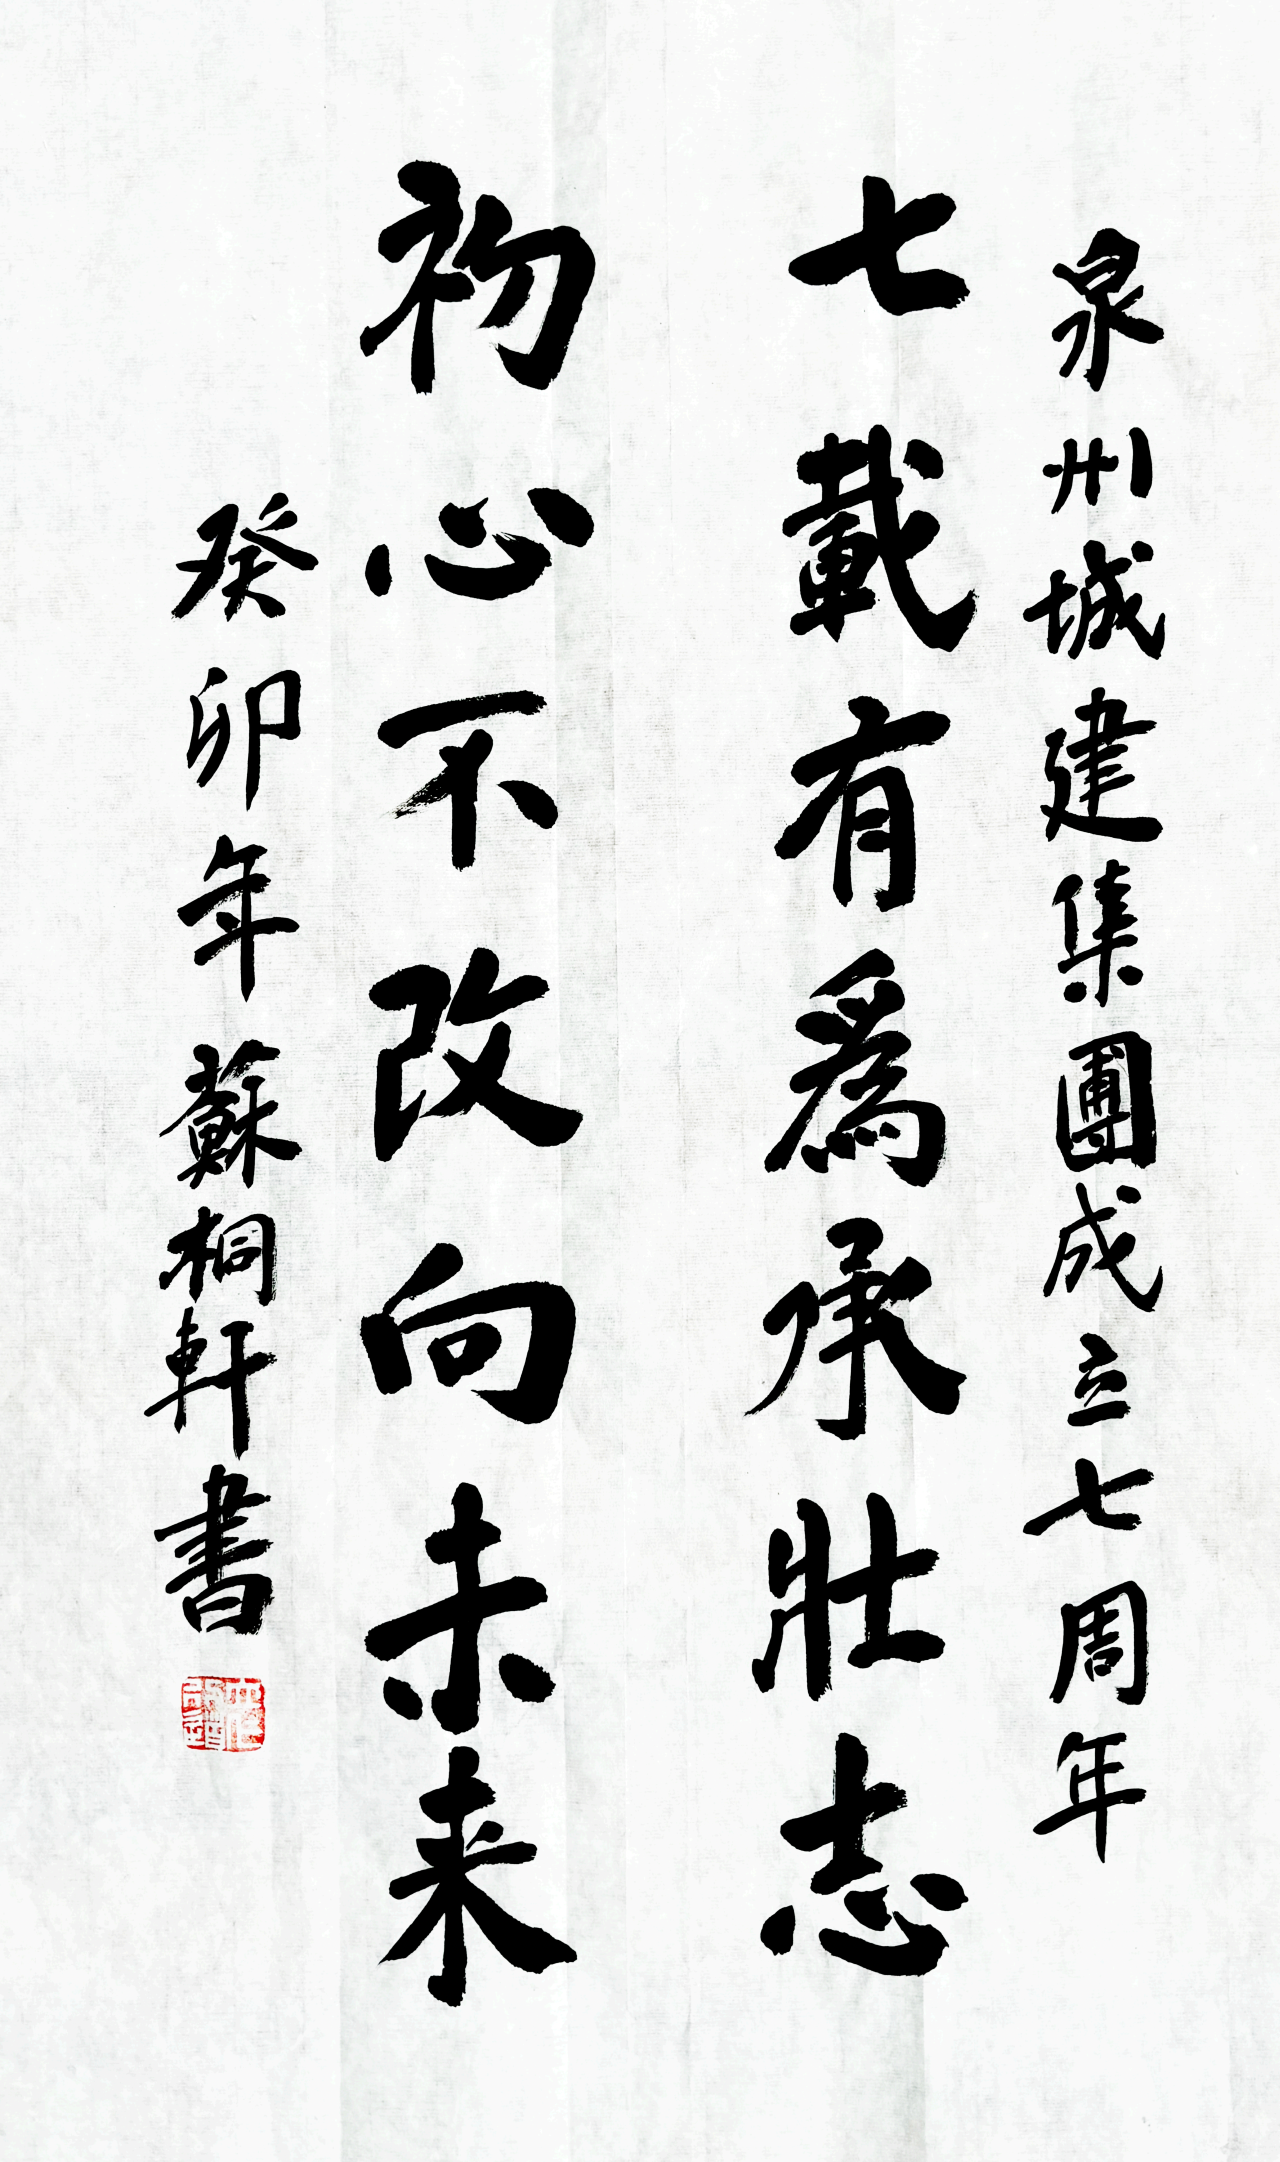 泉州城建集團成立七周年
七載有為承壯志
初心不改向未来
癸卯年蘇桐軒書